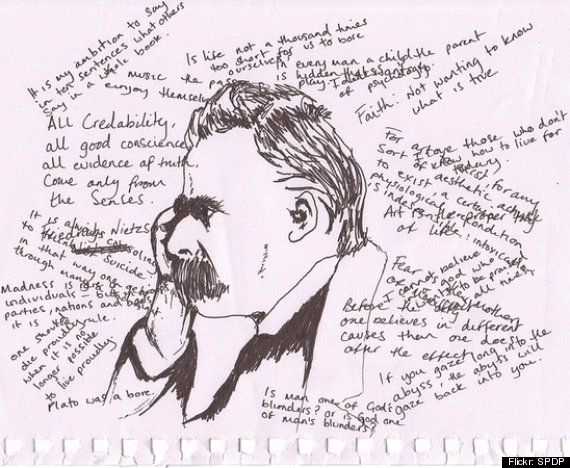 It is my ambition to say
in ten sentences what others
say in a whole book.
Is life not a thousand times
too short for us to bore
ourselves
In every man a child
is hidden that wants to
play.
the parent
of psychology
Faith: Not wanting to know
what is true
music the
enjoy themselves
All Credability,
all good conscience,
all evidence of truth.
Come only from
the Senses.
I love those who don't
know how to live for
today.
For art to exist, for any
sort of aesthetic activity
to exist, a certain
physiological precondition
is indispensable:
intoxication
It is always
to
in that way one
through many
suicide:
Madness is rare in
individuals – but in
parties, nations and ages
it is the rule.
one should
die proudly
when it is no
longer possible
to live proudly
Plato was a bore.
I cannot believe
in a god who
wants to be praised
all the time.
Fear
Before the effect
one believes in different
causes than one does
after the effect
If you gaze long into the
abyss, the abyss will
gaze back into you.
Is man one of God's
blunders? or is God one
of man's blunders?
Flickr: SPDP